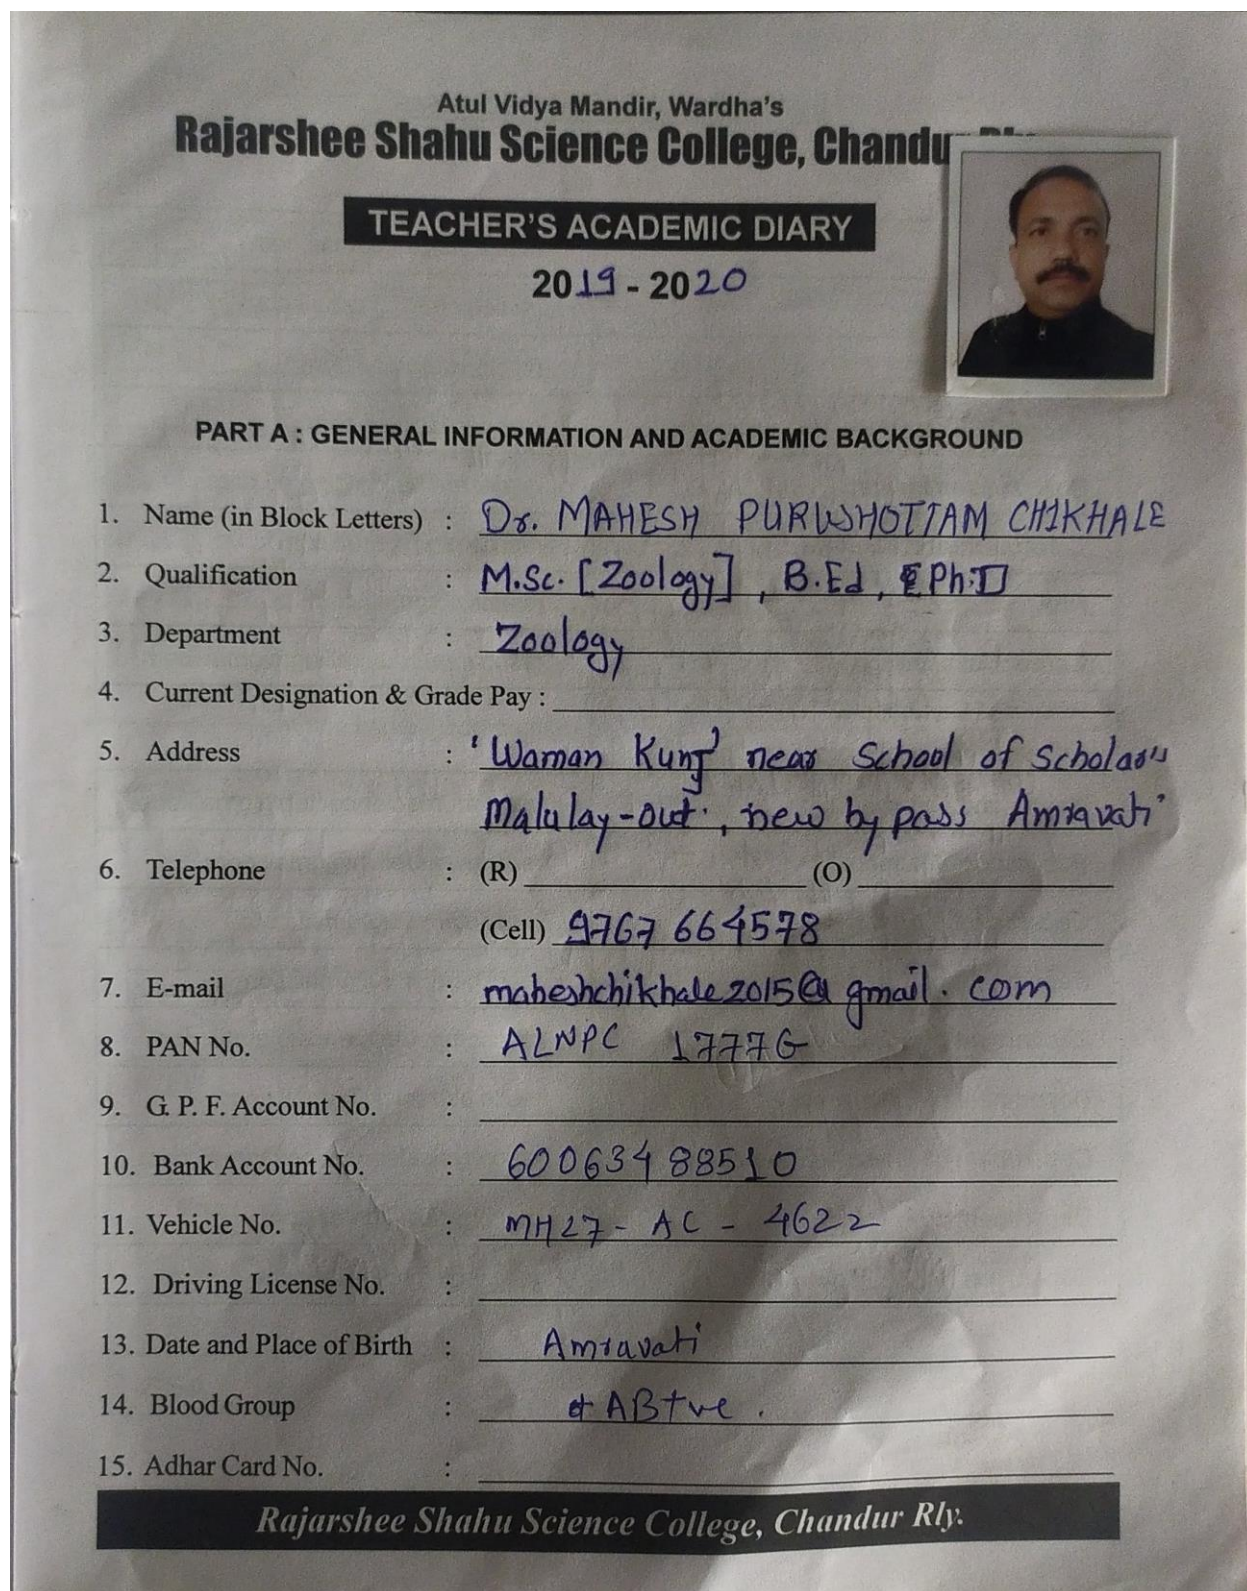 Atul Vidya Mandir, Wardha's
Rajarshee Shahu Science College, Chandur
TEACHER'S ACADEMIC DIARY
2019 - 2020
PART A : GENERAL INFORMATION AND ACADEMIC BACKGROUND
1. Name (in Block Letters) : Dr. MAHESH PURUSHOTTAM CHIKHALE
2. Qualification : M.Sc. [Zoology], B.Ed, Ph.D
3. Department : Zoology
4. Current Designation & Grade Pay :
5. Address : 'Waman Kunj' near School of Scholar's
Malulay-out., new by pass Amravati
6. Telephone : (R) (O)
(Cell) 9767 664578
7. E-mail : maheshchikhale2015@gmail.com
8. PAN No. : ALNPC 1777G
9. G. P. F. Account No. :
10. Bank Account No. : 60063488510
11. Vehicle No. : MH27 - AC - 4622
12. Driving License No. :
13. Date and Place of Birth : Amravati
14. Blood Group : AB+ve.
15. Adhar Card No. :
Rajarshee Shahu Science College, Chandur Rly.